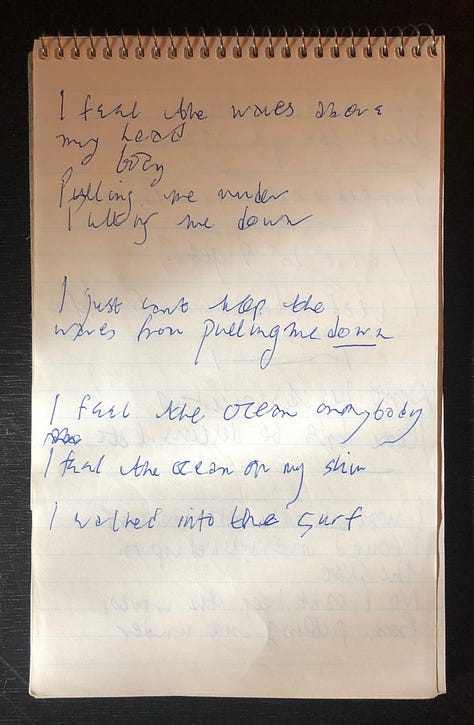 I feel the waves above
my head
body
Pulling me under
Pulling me down
I just cant keep the
waves from pulling me down
I feel the ocean on my body
I feel the ocean on my skin
I walked into the surf